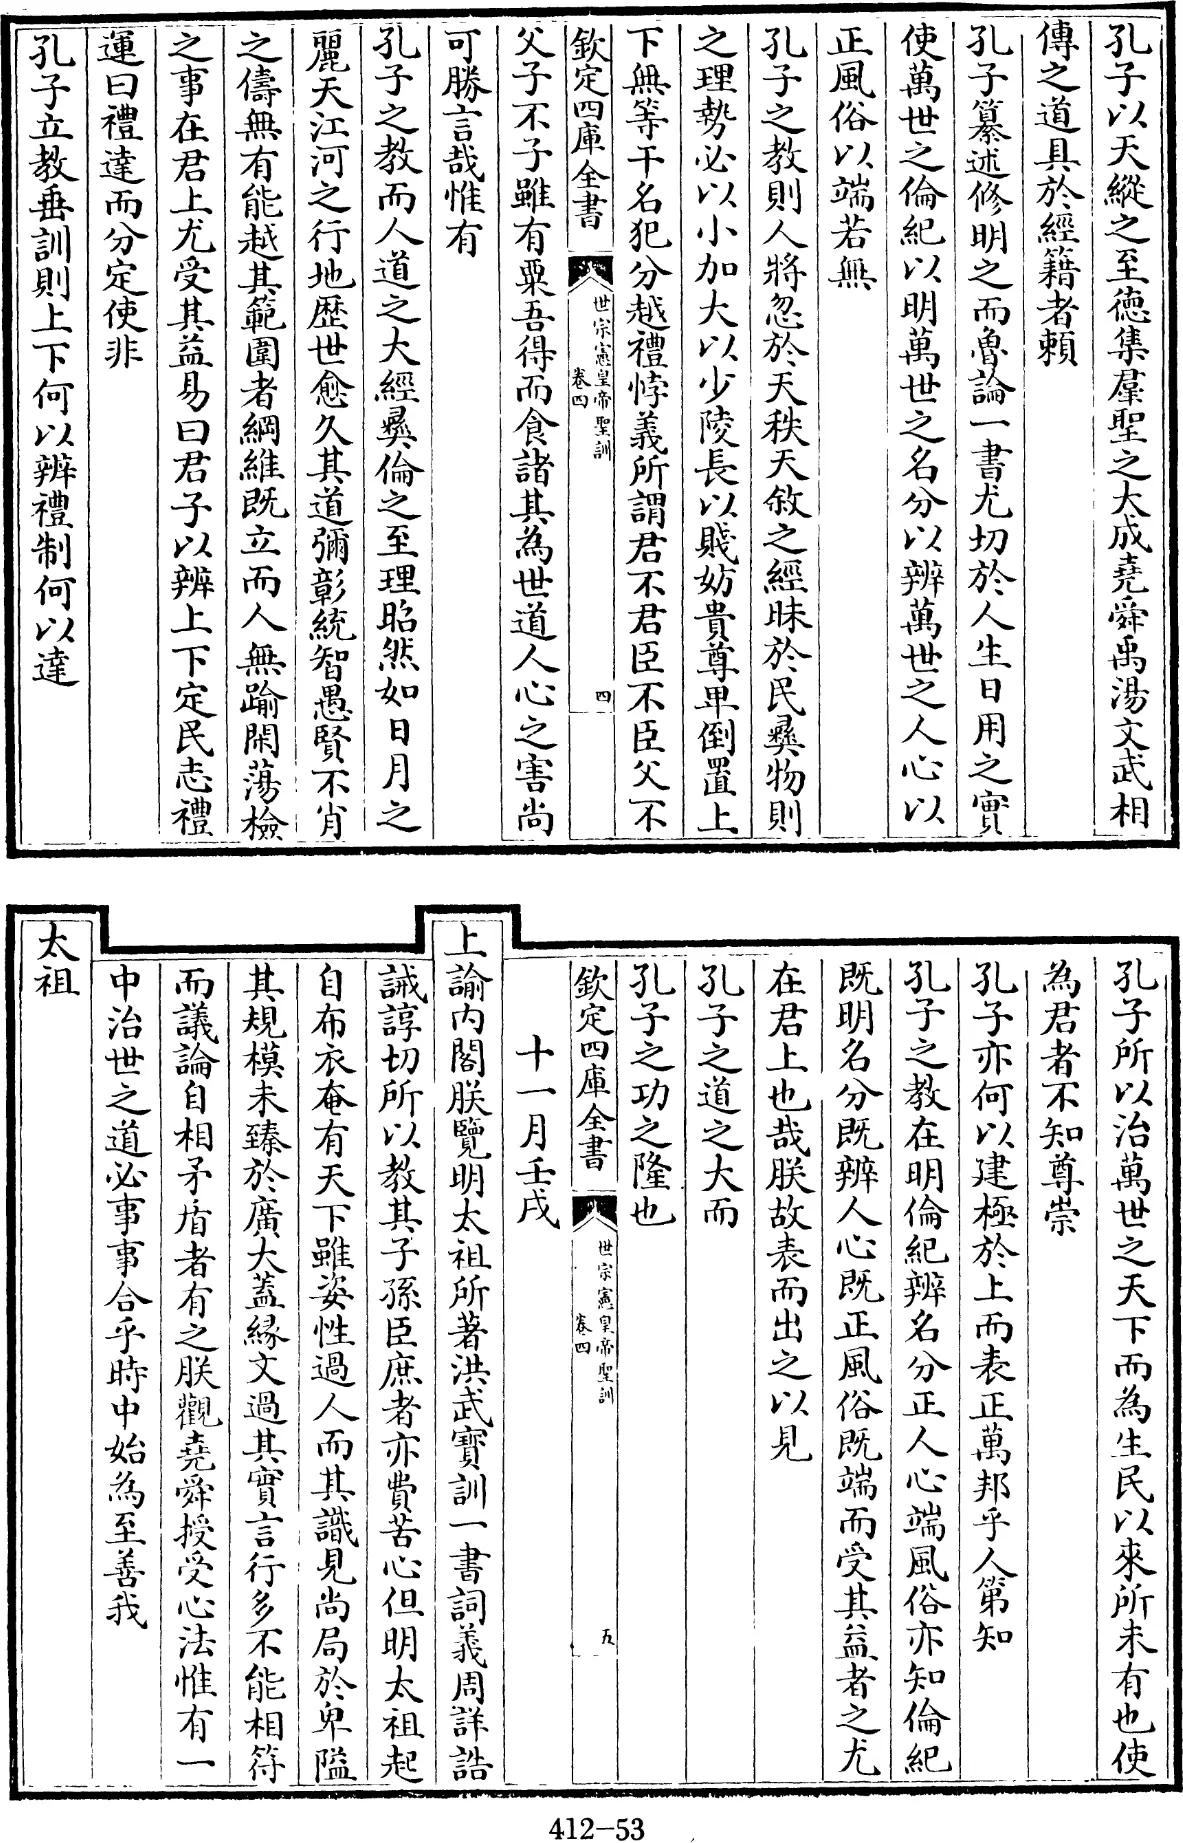 孔子以天縱之至德集羣聖之大成堯舜禹湯文武相
傳之道具於經籍者賴
孔子纂述修明之而魯論一書尤切於人生日用之實
使萬世之倫紀以明萬世之名分以辨萬世之人心以
正風俗以端若無
孔子之教則人將忽於天秩天敘之經昧於民彝物則
之理勢必以小加大以少陵長以賤妨貴尊卑倒置上
下無等干名犯分越禮悖義所謂君不君臣不臣父不
欽定四庫全書
世宗憲皇帝聖訓
卷四
四
父子不子雖有粟吾得而食諸其為世道人心之害尚
可勝言哉惟有
孔子之教而人道之大經彝倫之至理昭然如日月之
麗天江河之行地歷世愈久其道彌彰統智愚賢不肖
之儔無有能越其範圍者綱維既立而人無踰閑蕩檢
之事在君上尤受其益易曰君子以辨上下定民志禮
運曰禮達而分定使非
孔子立教垂訓則上下何以辨禮制何以達
孔子所以治萬世之天下而為生民以來所未有也使
為君者不知尊崇
孔子亦何以建極於上而表正萬邦乎人第知
孔子之教在明倫紀辨名分正人心端風俗亦知倫紀
既明名分既辨人心既正風俗既端而受其益者之尤
在君上也哉朕故表而出之以見
孔子之道之大而
孔子之功之隆也
欽定四庫全書
世宗憲皇帝聖訓
卷四
五
十一月壬戌
上諭内閣朕覽明太祖所著洪武寳訓一書詞義周詳誥
誡諄切所以教其子孫臣庶者亦費苦心但明太祖起
自布衣奄有天下雖姿性過人而其識見尚局於卑隘
其規模未臻於廣大蓋緣文過其實言行多不能相符
而議論自相矛盾者有之朕觀堯舜授受心法惟有一
中治世之道必事事合乎時中始為至善我
太祖
412-53